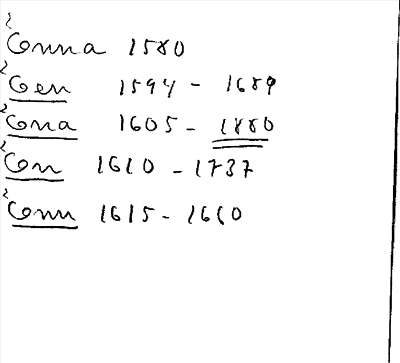 Conna 1580
Cen 1594 - 1689
Cona 1605 - 1880
Con 1610 - 1737
Conn 1615 - 1660